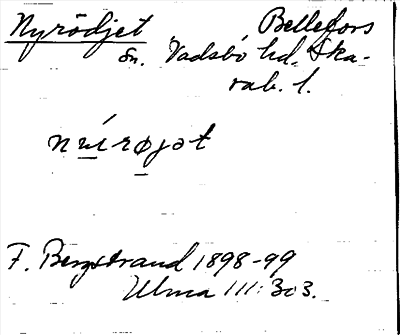 Nyrödjet Bellefors
sn. Vadsbo hd. Ska-
rab. l.
nẃırøjət
F. Bergstrand 1898-99
Ulma 111:303.